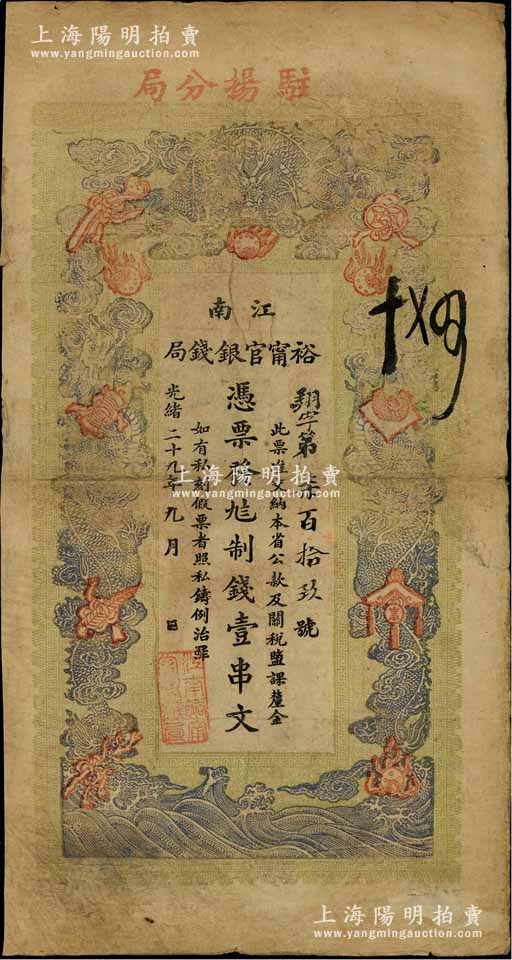 上海陽明拍賣
www.yangmingauction.com
駐揚分局
江南
裕甯官銀錢局
第柒百拾玖號
此票准交納本省公款及關稅鹽課釐金
憑票發九八制錢壹串文
如有私刻假票者照私鑄例治罪
光緒二十九年九月 日
上海陽明拍賣
www.yangmingauction.com
上海陽明拍賣
www.yangmingauction.com